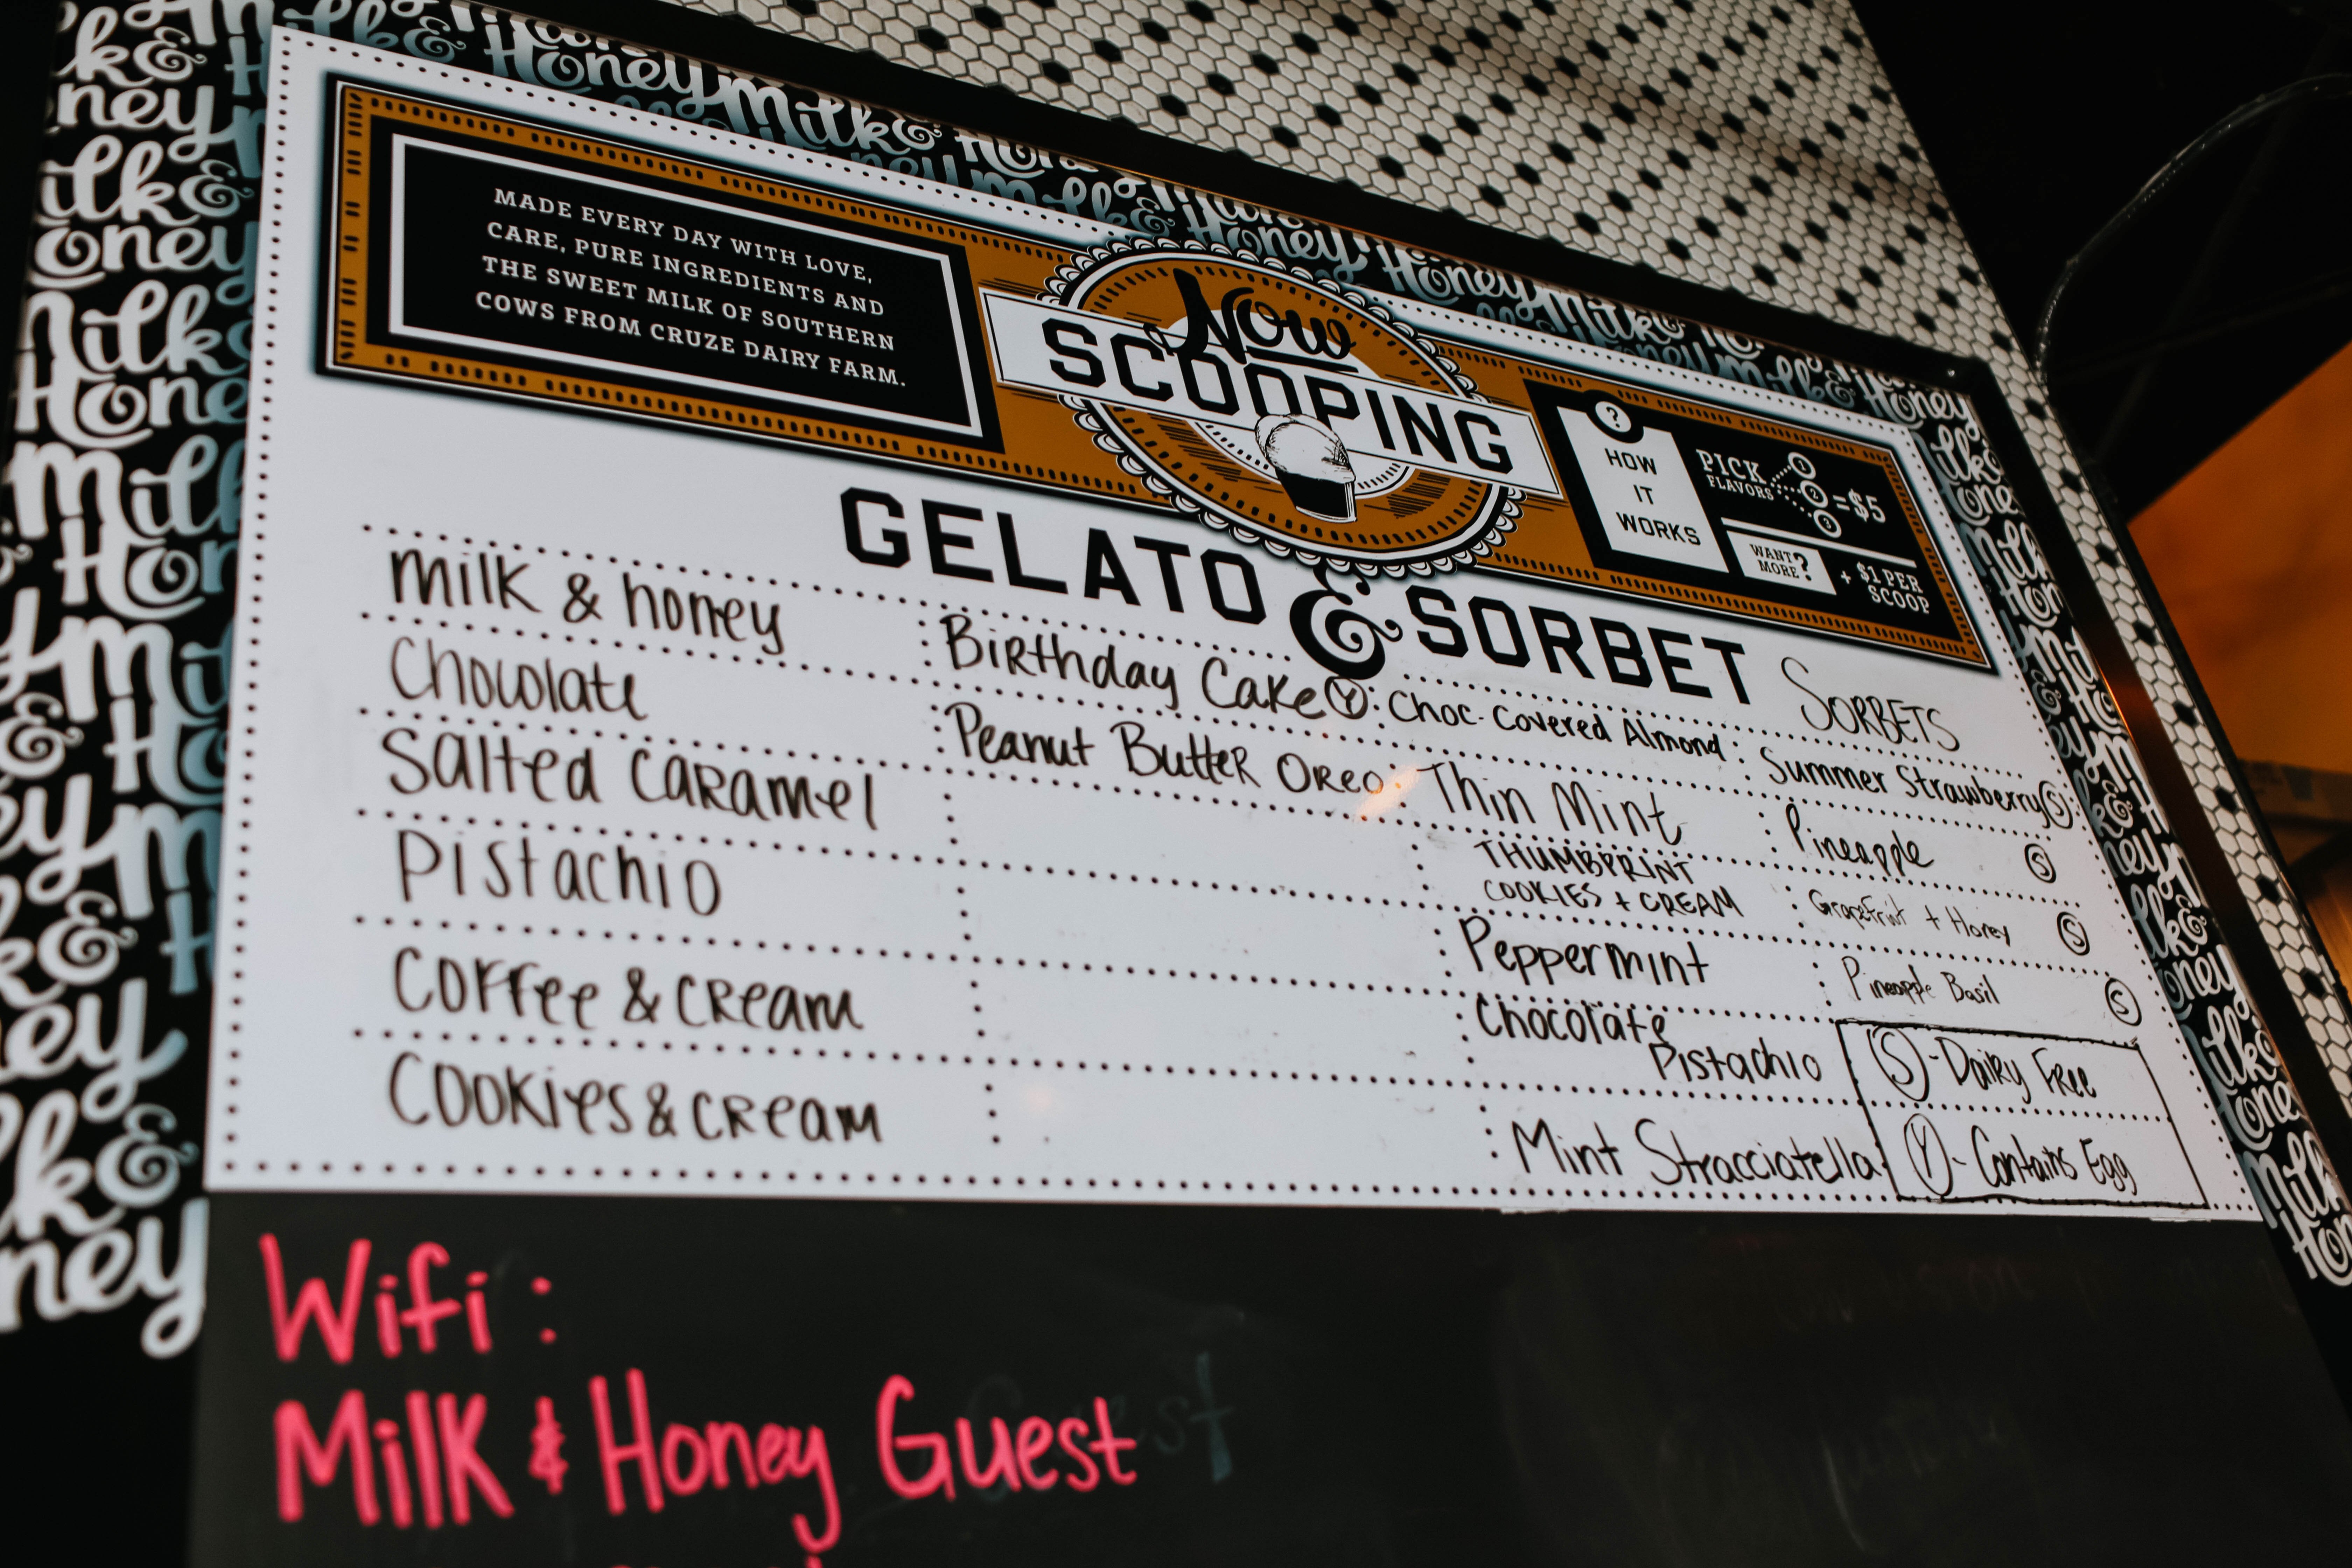 MADE EVERY DAY WITH LOVE,
CARE, PURE INGREDIENTS AND
THE SWEET MILK OF SOUTHERN
COWS FROM CRUZE DAIRY FARM.
Now
SCOOPING
?
HOW
IT
WORKS
PICK
FLAVORS
1
2
3
=$5
WANT
MORE?
+ $1 PER
SCOOP
GELATO & SORBET
milk & honey
Chocolate
Salted Caramel
Pistachio
Coffee & cream
Cookies & cream
Birthday Cake Y
Peanut Butter Oreo
Choc. Covered Almond
Thin Mint
THUMBPRINT
COOKIES + CREAM
Peppermint
Chocolate
Pistachio
Mint Stracciatella
SORBETS
Summer Strawberry S
Pineapple S
Grapefruit + Honey S
Pineapple Basil S
S - Dairy Free
Y - Contains Egg
Wifi:
Milk & Honey Guest
Milk & Honey